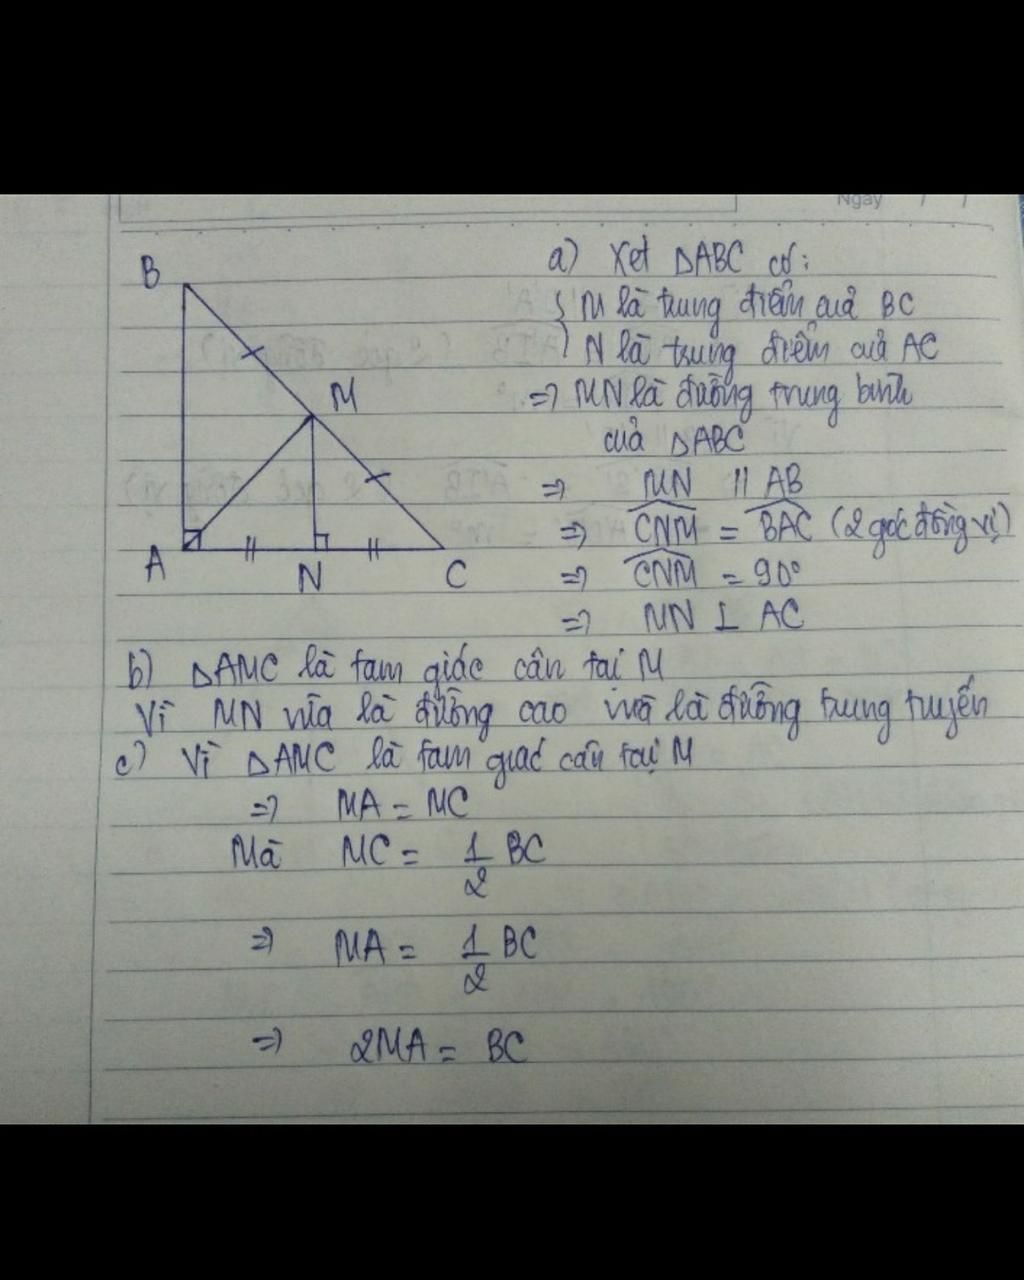 Ngày / /
a) Xét ΔABC có:
{ M là trung điểm của BC
N là trung điểm của AC
=> MN là đường trung bình
của ΔABC
=> MN // AB
=> \widehat{CNM} = \widehat{BAC} (2 góc đồng vị)
=> \widehat{CNM} = 90°
=> MN ⊥ AC
B
M
A
N
C
b) ΔAMC là tam giác cân tại M
Vì MN vừa là đường cao vừa là đường trung tuyến
c) Vì ΔAMC là tam giác cân tại M
=> MA = MC
Mà MC = 1/2 BC
=> MA = 1/2 BC
=> 2MA = BC